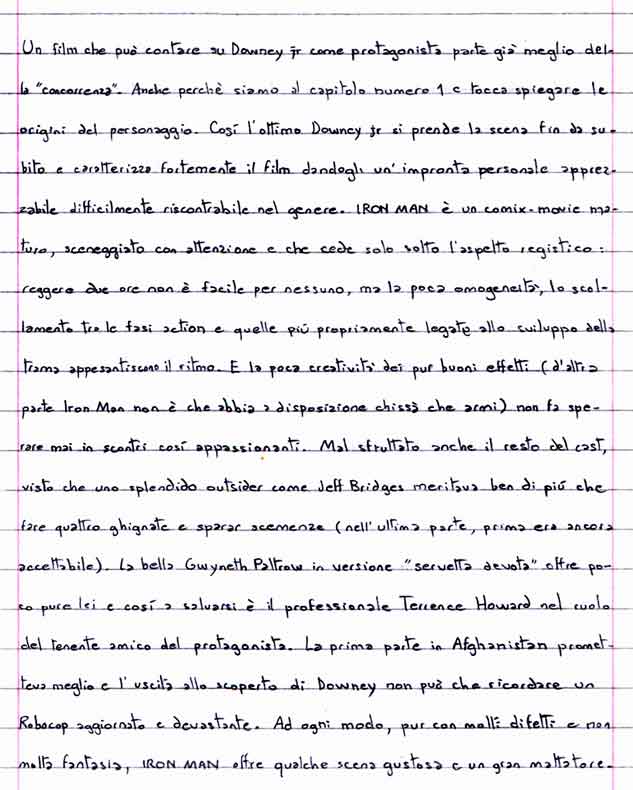 Un film che può contare su Downey jr come protagonista parte già meglio del-
la "concorrenza". Anche perchè siamo al capitolo numero 1 e tocca spiegare le
origini del personaggio. Così l'ottimo Downey jr si prende la scena fin da su-
bito e caratterizza fortemente il film dandogli un' impronta personale apprez-
zabile difficilmente riscontrabile nel genere. IRON MAN è un comix-movie ma-
turo, sceneggiato con attenzione e che cede solo sotto l'aspetto registico:
reggere due ore non è facile per nessuno, ma la poca omogeneità, lo scol-
lamento tra le fasi action e quelle più propriamente legate allo sviluppo della
trama appesantiscono il ritmo. E la poca creatività dei pur buoni effetti (d'altra
parte Iron Man non è che abbia a disposizione chissà che armi) non fa spe-
rare mai in scontri così appassionanti. Mal sfruttato anche il resto del cast,
visto che uno splendido outsider come Jeff Bridges meritava ben di più che
fare quattro ghignate e sparar scemenze (nell'ultima parte, prima era ancora
accettabile). La bella Gwyneth Paltrow in versione "servetta devota" offre po-
co pure lei e così a salvarsi è il professionale Terrence Howard nel ruolo
del tenente amico del protagonista. La prima parte in Afghanistan promet-
teva meglio e l'uscita allo scoperto di Downey non può che ricordare un
Robocop aggiornato e devastante. Ad ogni modo, pur con molti difetti e non
molta fantasia, IRON MAN offre qualche scena gustosa e un gran mattatore.